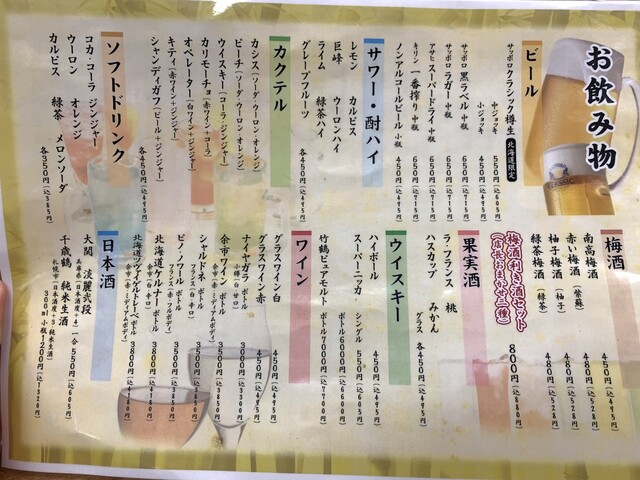 お飲み物
ビール
サッポロクラシック樽生 北海道限定
中ジョッキ 550円(込605円)
小ジョッキ 450円(込495円)
サッポロ 黒ラベル 中瓶 650円(込715円)
サッポロ ラガー 中瓶 650円(込715円)
アサヒ スーパードライ 中瓶 650円(込715円)
キリン 一番搾り 中瓶 650円(込715円)
ノンアルコールビール 小瓶 450円(込495円)
サワー・酎ハイ
レモン カルピス
巨峰 ウーロンハイ
ライム 緑茶ハイ
グレープフルーツ
各450円(込495円)
カクテル
カシス(ソーダ・ウーロン・オレンジ)
ピーチ(ソーダ・ウーロン・オレンジ)
ウイスキー(コーラ・ジンジャー)
カリモーチョ(赤ワイン+コーラ)
オペレーター(白ワイン+ジンジャー)
キティ(赤ワイン+ジンジャー)
シャンディガフ(ビール+ジンジャー)
各450円(込495円)
ソフトドリンク
コカ・コーラ ジンジャー
ウーロン オレンジ
カルピス 緑茶 メロンソーダ
各350円(込385円)
梅酒
南高梅酒 450円(込495円)
赤い梅酒(紫蘇) 480円(込528円)
柚子梅酒(柚子) 480円(込528円)
緑茶梅酒(緑茶) 480円(込528円)
梅酒利き酒セット
(店長おまかせ三種) 800円(込880円)
果実酒
ラ・フランス 桃
ハスカップ みかん
グラス 各450円(込495円)
ウイスキー
ハイボール 450円(込495円)
スーパーニッカ シングル 550円(込605円)
ボトル6000円(込6600円)
竹鶴ピュアモルト ボトル7000円(込7700円)
ワイン
グラスワイン白 450円(込495円)
グラスワイン赤 450円(込495円)
ナイヤガラ ボトル 3000円(込3300円)
小樽(白 甘口)
余市ワイン ボトル
シャルドネ ボトル 3500円
フランス(白 辛口)
ピノ・ノワール ボトル 3500円
フランス(赤 フルボディ)
北海道ケルナー ボトル 3800円(込4180円)
余市(白 辛口)
北海道ツヴァイゲルトレーベ ボトル 3800円(込4180円)
余市(赤 ミディアムボディ)
日本酒
大関 淡麗弐段 一合 550円(込605円)
兵庫県(日本酒度+4)
千歳鶴 純米生酒
札幌市(日本酒度+3 純米生酒)
300ml 小瓶1200円(込1320円)